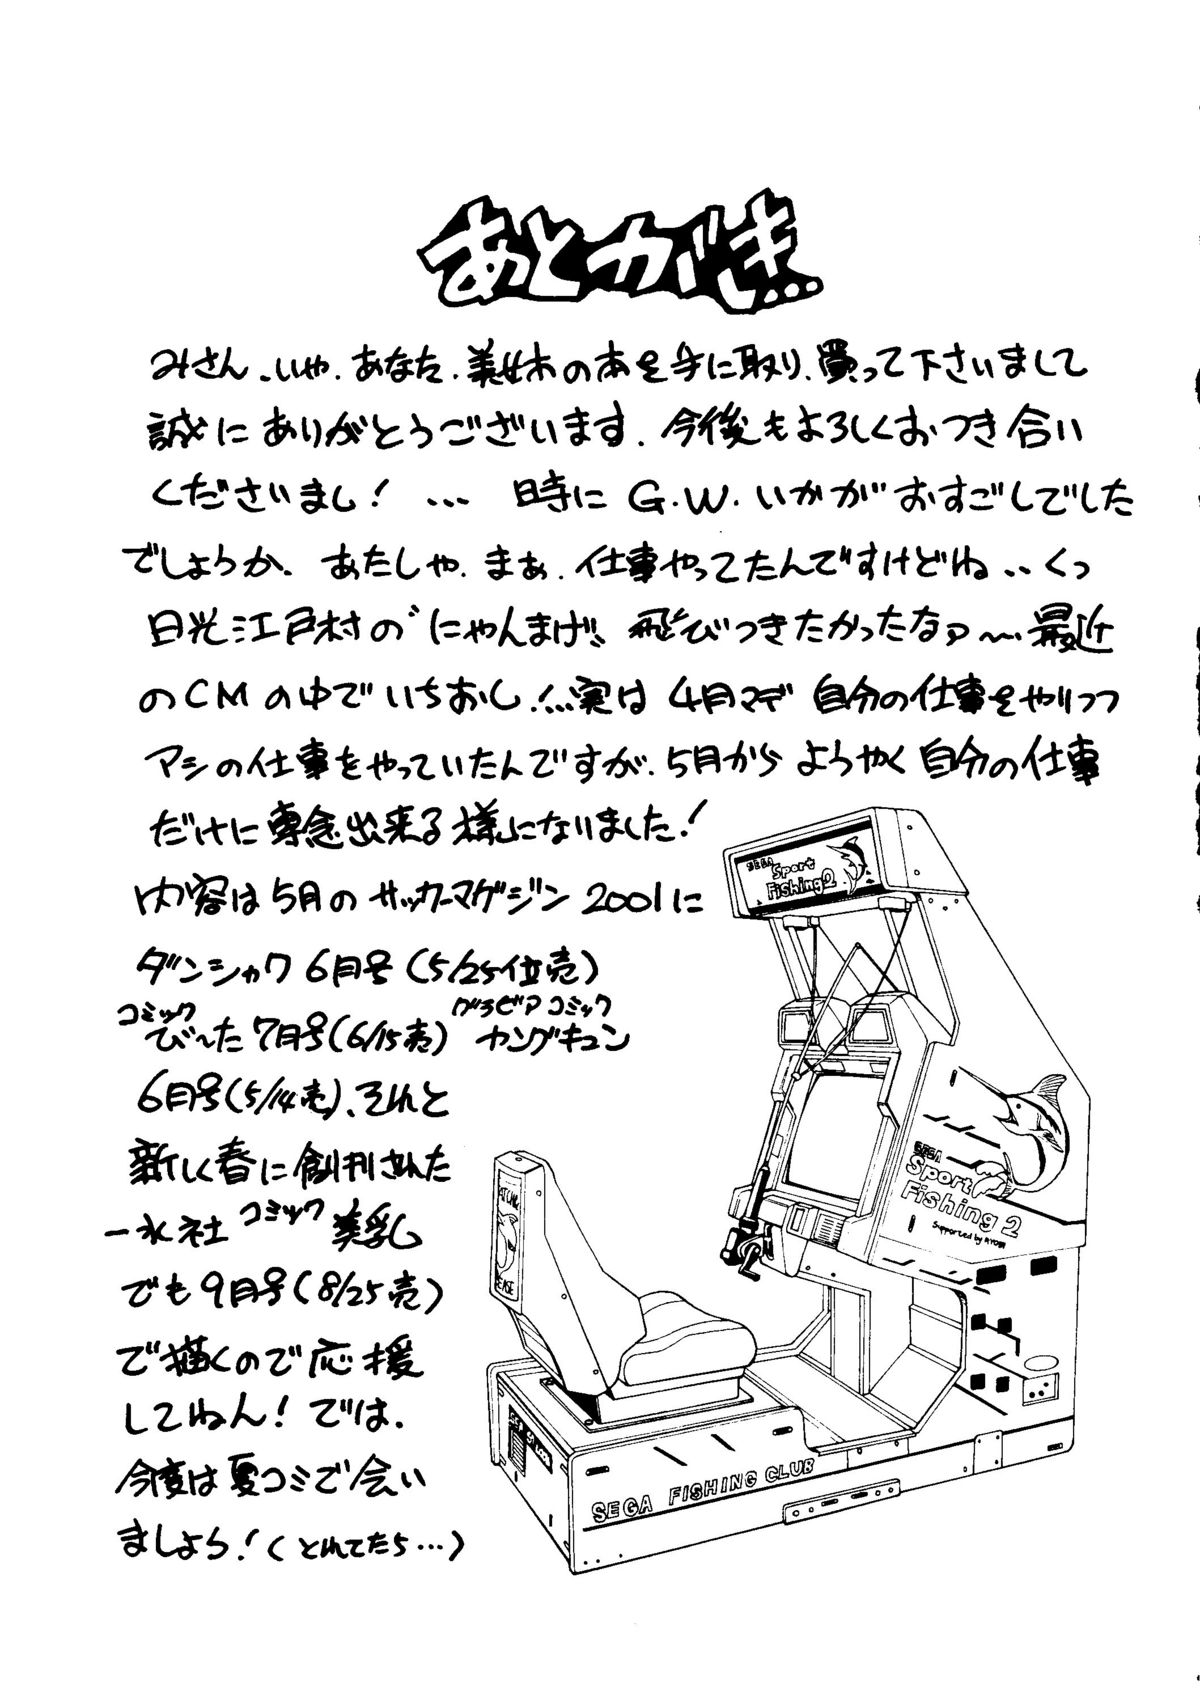 あとがき...
みさん、いや、あなた、美姝の本を手に取り、買って下さいまして
誠にありがとうございます。今後もよろしくおつき合い
くださいまし! … 時にG.W.いかがおすごしでした
でしょうか。あたしゃ、まぁ、仕事やってたんですけどね、、くっ
日光江戸村の"にゃんまげ"、飛びつきたかったなァ〜… 最近
のCMの中でいちおし!…実は4月マデ自分の仕事をやりつつ
アシの仕事をやっていたんですが、5月からようやく自分の仕事
だけに専念出来る様になりました!
内容は5月のサッカーマガジン2001に
ダンシャク6月号(5/25位売)
コミック
びーた7月号(6/15売)
グラビアコミック
ヤングキュン
6月号(5/14売)、それと
新しく春に創刊された
一水社 コミック 美乳
でも9月号(8/25売)
で描くので応援
してねん!では、
今度は夏コミで会い
ましょう!(とれてたら…)
SEGA
Sport
Fishing 2
SEGA
Sport
Fishing 2
Supported by RYOBI
SEGA FISHING CLUB